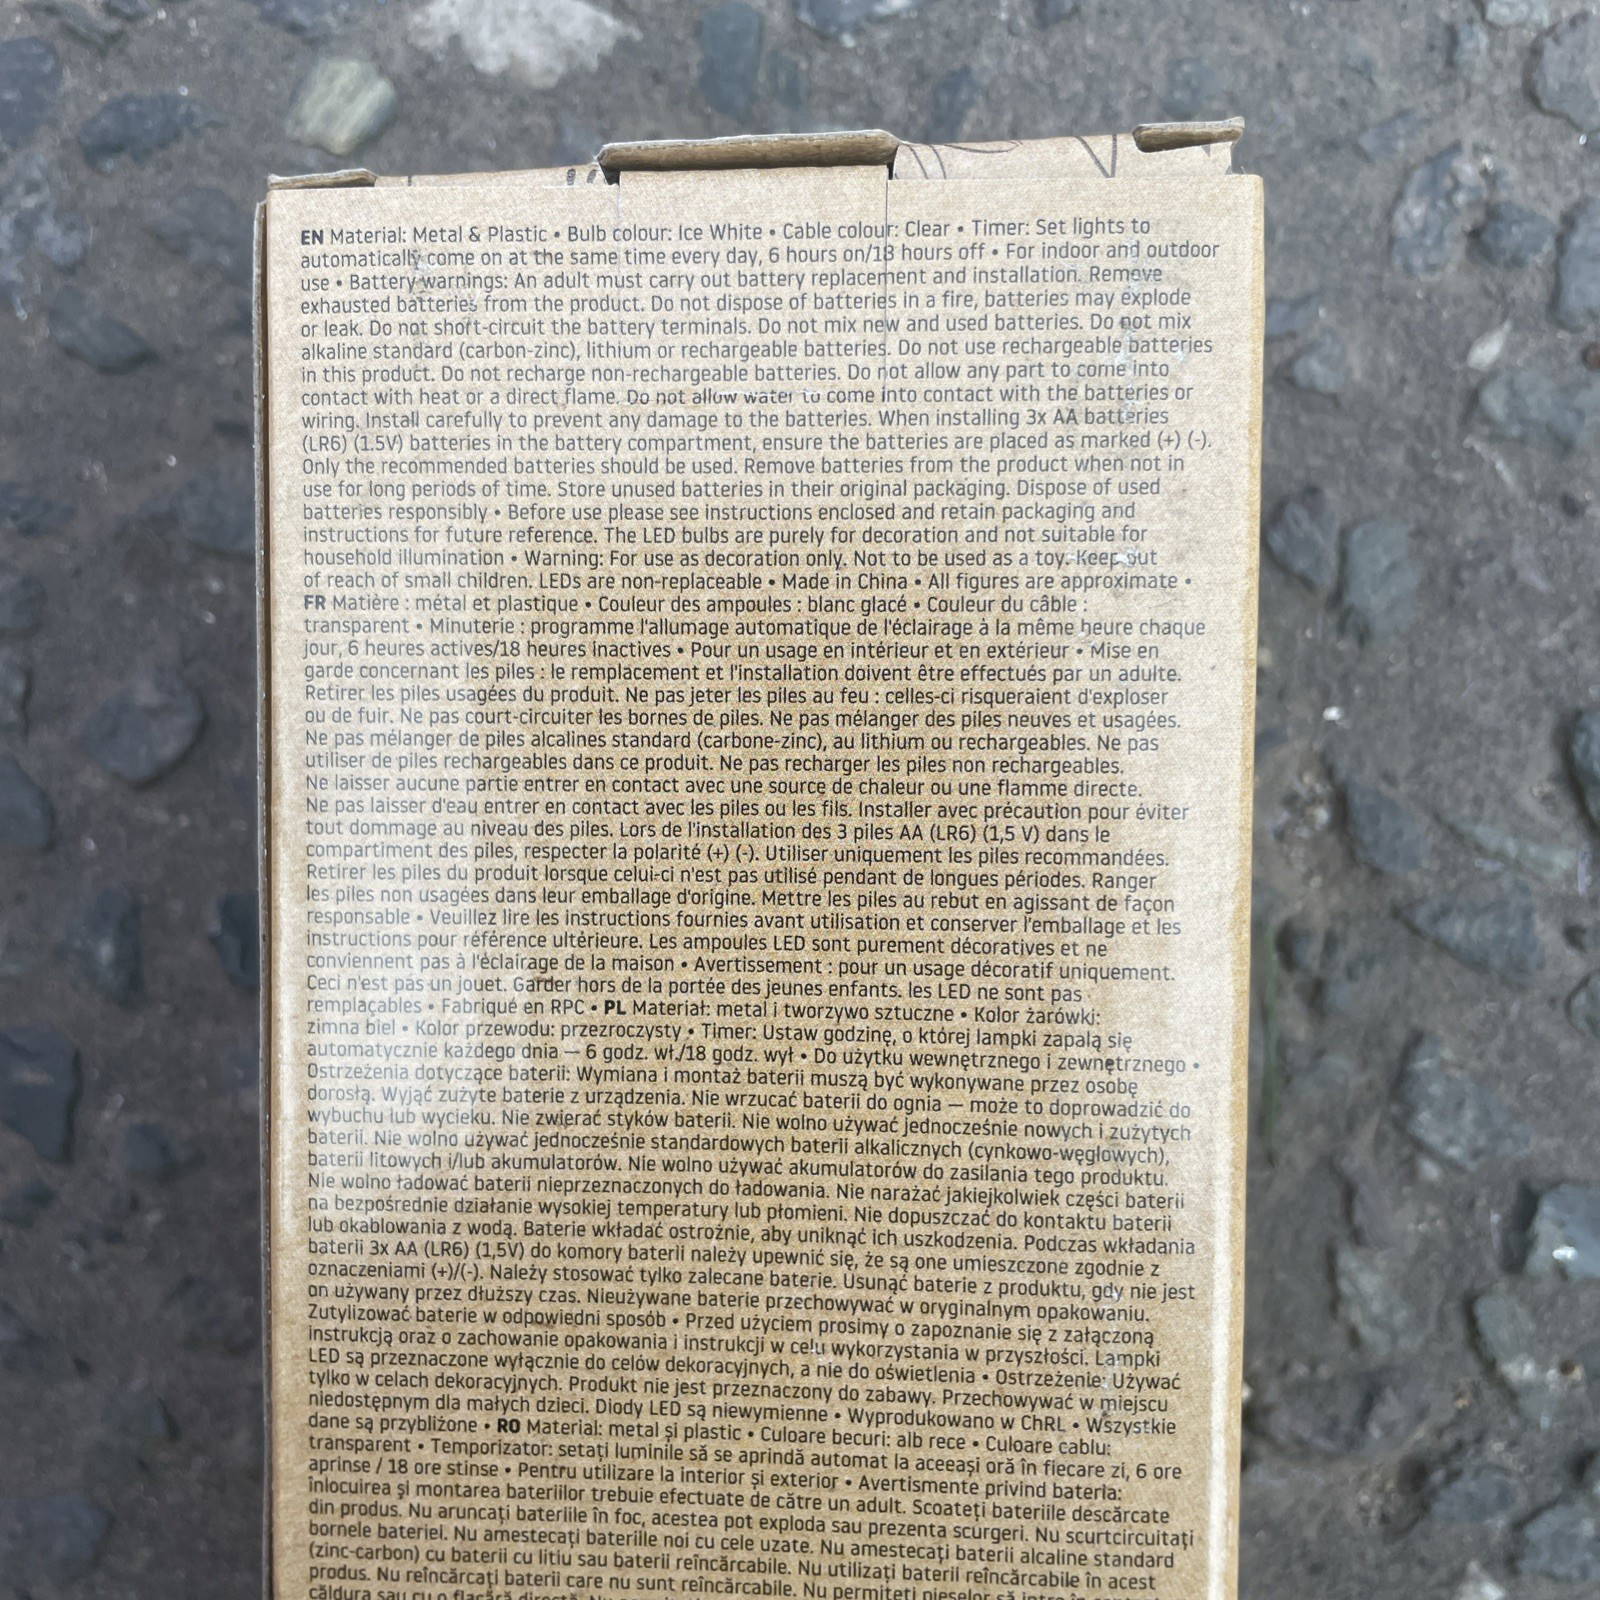 EN Material: Metal & Plastic • Bulb colour: Ice White • Cable colour: Clear • Timer: Set lights to
automatically come on at the same time every day, 6 hours on/18 hours off • For indoor and outdoor
use • Battery warnings: An adult must carry out battery replacement and installation. Remove
exhausted batteries from the product. Do not dispose of batteries in a fire, batteries may explode
or leak. Do not short-circuit the battery terminals. Do not mix new and used batteries. Do not mix
alkaline standard (carbon-zinc), lithium or rechargeable batteries. Do not use rechargeable batteries
in this product. Do not recharge non-rechargeable batteries. Do not allow any part to come into
contact with heat or a direct flame. Do not allow water to come into contact with the batteries or
wiring. Install carefully to prevent any damage to the batteries. When installing 3x AA batteries
(LR6) (1.5V) batteries in the battery compartment, ensure the batteries are placed as marked (+) (-).
Only the recommended batteries should be used. Remove batteries from the product when not in
use for long periods of time. Store unused batteries in their original packaging. Dispose of used
batteries responsibly • Before use please see instructions enclosed and retain packaging and
instructions for future reference. The LED bulbs are purely for decoration and not suitable for
household illumination • Warning: For use as decoration only. Not to be used as a toy. Keep out
of reach of small children. LEDs are non-replaceable • Made in China • All figures are approximate •
FR Matière : métal et plastique • Couleur des ampoules : blanc glacé • Couleur du câble :
transparent • Minuterie : programme l'allumage automatique de l'éclairage à la même heure chaque
jour, 6 heures actives/18 heures inactives • Pour un usage en intérieur et en extérieur • Mise en
garde concernant les piles : le remplacement et l'installation doivent être effectués par un adulte.
Retirer les piles usagées du produit. Ne pas jeter les piles au feu : celles-ci risqueraient d'exploser
ou de fuir. Ne pas court-circuiter les bornes de piles. Ne pas mélanger des piles neuves et usagées.
Ne pas mélanger de piles alcalines standard (carbone-zinc), au lithium ou rechargeables. Ne pas
utiliser de piles rechargeables dans ce produit. Ne pas recharger les piles non rechargeables.
Ne laisser aucune partie entrer en contact avec une source de chaleur ou une flamme directe.
Ne pas laisser d'eau entrer en contact avec les piles ou les fils. Installer avec précaution pour éviter
tout dommage au niveau des piles. Lors de l'installation des 3 piles AA (LR6) (1,5 V) dans le
compartiment des piles, respecter la polarité (+) (-). Utiliser uniquement les piles recommandées.
Retirer les piles du produit lorsque celui-ci n'est pas utilisé pendant de longues périodes. Ranger
les piles non usagées dans leur emballage d'origine. Mettre les piles au rebut en agissant de façon
responsable • Veuillez lire les instructions fournies avant utilisation et conserver l'emballage et les
instructions pour référence ultérieure. Les ampoules LED sont purement décoratives et ne
conviennent pas à l'éclairage de la maison • Avertissement : pour un usage décoratif uniquement.
Ceci n'est pas un jouet. Garder hors de la portée des jeunes enfants. les LED ne sont pas
remplaçables • Fabriqué en RPC • PL Materiał: metal i tworzywo sztuczne • Kolor żarówki:
zimna biel • Kolor przewodu: przezroczysty • Timer: Ustaw godzinę, o której lampki zapalą się
automatycznie każdego dnia — 6 godz. wł./18 godz. wył • Do użytku wewnętrznego i zewnętrznego •
Ostrzeżenia dotyczące baterii: Wymiana i montaż baterii muszą być wykonywane przez osobę
dorosłą. Wyjąć zużyte baterie z urządzenia. Nie wrzucać baterii do ognia — może to doprowadzić do
wybuchu lub wycieku. Nie zwierać styków baterii. Nie wolno używać jednocześnie nowych i zużytych
baterii. Nie wolno używać jednocześnie standardowych baterii alkalicznych (cynkowo-węglowych),
baterii litowych i/lub akumulatorów. Nie wolno używać akumulatorów do zasilania tego produktu.
Nie wolno ładować baterii nieprzeznaczonych do ładowania. Nie narażać jakiejkolwiek części baterii
na bezpośrednie działanie wysokiej temperatury lub płomieni. Nie dopuszczać do kontaktu baterii
lub okablowania z wodą. Baterie wkładać ostrożnie, aby uniknąć ich uszkodzenia. Podczas wkładania
baterii 3x AA (LR6) (1,5V) do komory baterii należy upewnić się, że są one umieszczone zgodnie z
oznaczeniami (+)/(-). Należy stosować tylko zalecane baterie. Usunąć baterie z produktu, gdy nie jest
on używany przez dłuższy czas. Nieużywane baterie przechowywać w oryginalnym opakowaniu.
Zutylizować baterie w odpowiedni sposób • Przed użyciem prosimy o zapoznanie się z załączoną
instrukcją oraz o zachowanie opakowania i instrukcji w celu wykorzystania w przyszłości. Lampki
LED są przeznaczone wyłącznie do celów dekoracyjnych, a nie do oświetlenia • Ostrzeżenie: Używać
tylko w celach dekoracyjnych. Produkt nie jest przeznaczony do zabawy. Przechowywać w miejscu
niedostępnym dla małych dzieci. Diody LED są niewymienne • Wyprodukowano w ChRL • Wszystkie
dane są przybliżone • RO Material: metal și plastic • Culoare becuri: alb rece • Culoare cablu:
transparent • Temporizator: setați luminile să se aprindă automat la aceeași oră în fiecare zi, 6 ore
aprinse / 18 ore stinse • Pentru utilizare la interior și exterior • Avertismente privind bateria:
înlocuirea și montarea bateriilor trebuie efectuate de către un adult. Scoateți bateriile descărcate
din produs. Nu aruncați bateriile în foc, acestea pot exploda sau prezenta scurgeri. Nu scurtcircuitați
bornele bateriei. Nu amestecați bateriile noi cu cele uzate. Nu amestecați baterii alcaline standard
(zinc-carbon) cu baterii cu litiu sau baterii reîncărcabile. Nu utilizați baterii reîncărcabile în acest
produs. Nu reîncărcați baterii care nu sunt reîncărcabile. Nu permiteți pieselor să intre în
căldura sau cu o flacără directă. Nu